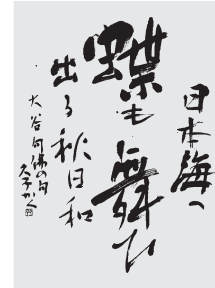 日本海へ
蝶も舞ひ
出る秋日和
大谷句佛の句
久子かく